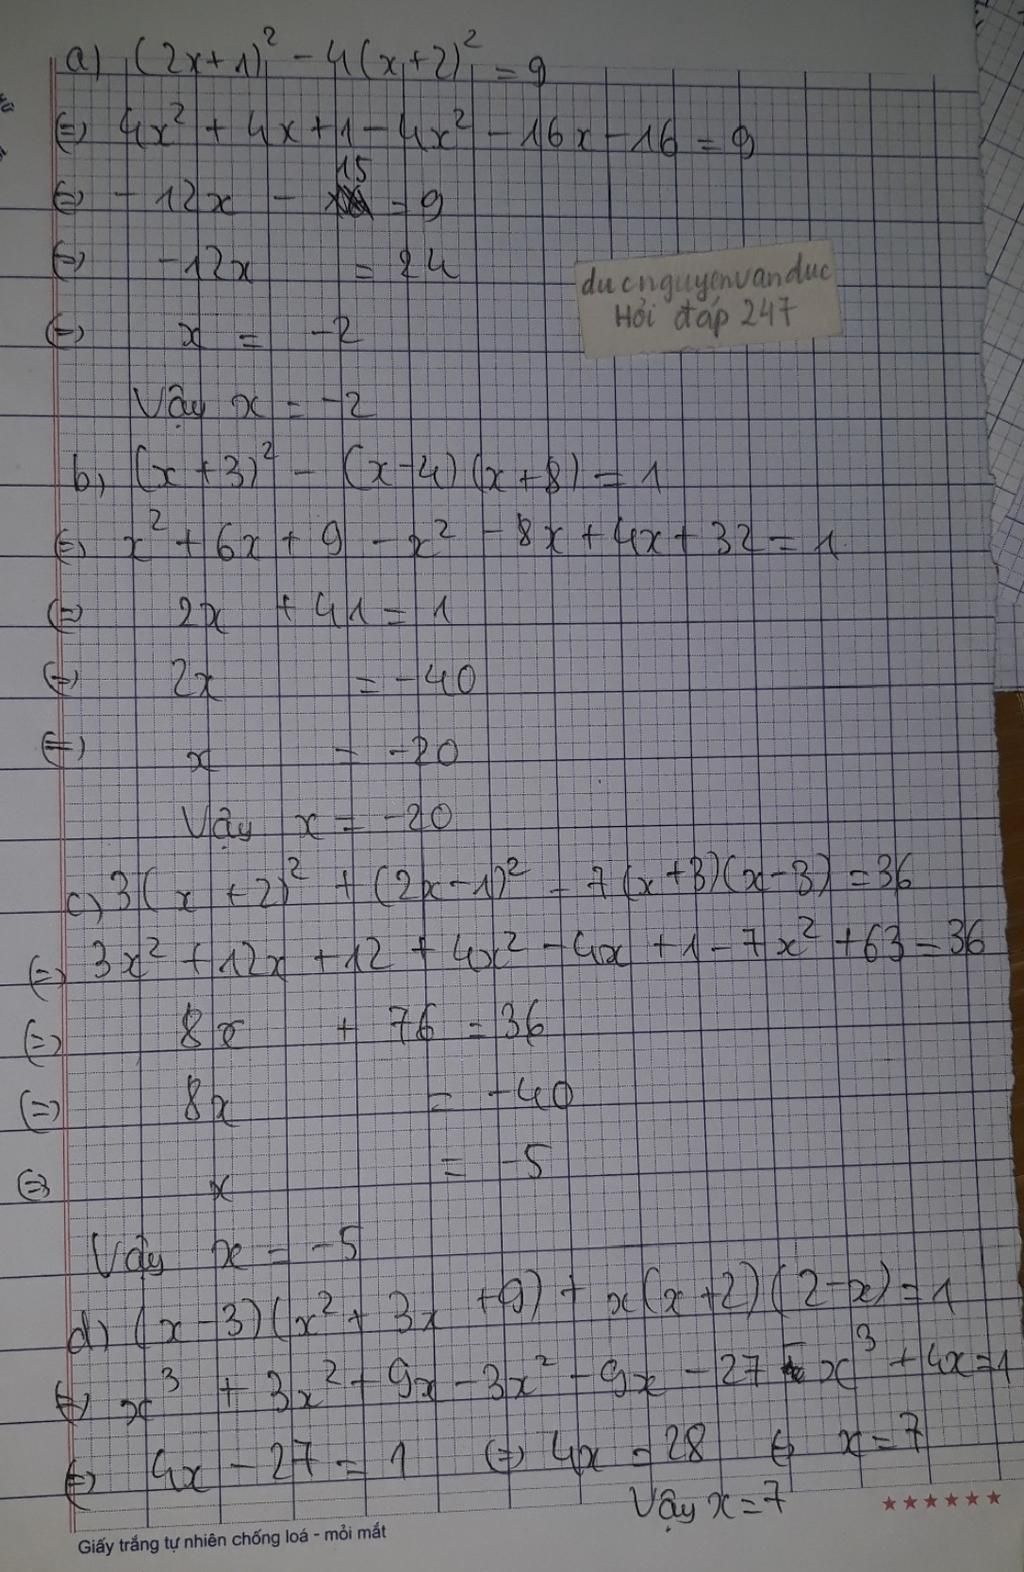 a) (2x+1)² - 4(x+2)² = 9
(=) 4x² + 4x + 1 - 4x² - 16x - 16 = 9
(=) - 12x - 15 = 9
(=) -12x = 24
(=) x = -2
ducnguyenvanduc
Hỏi đáp 247
Vậy x = -2
b) (x+3)² - (x-4)(x+8) = 1
(=) x² + 6x + 9 - x² - 8x + 4x + 32 = 1
(=) 2x + 41 = 1
(=) 2x = -40
(=) x = -20
Vậy x = -20
c) 3(x+2)² + (2x-1)² - 7(x+3)(x-3) = 36
(=) 3x² + 12x + 12 + 4x² - 4x + 1 - 7x² + 63 = 36
(=) 8x + 76 = 36
(=) 8x = -40
(=) x = -5
Vậy x = -5
d) (x-3)(x² + 3x + 9) + x(x+2)(2-x) = 1
(=) x³ + 3x² + 9x - 3x² - 9x - 27 - x³ + 4x = 1
(=) 4x - 27 = 1 (=) 4x = 28 (=) x = 7
Vậy x = 7
Giấy trắng tự nhiên chống loá - mỏi mắt